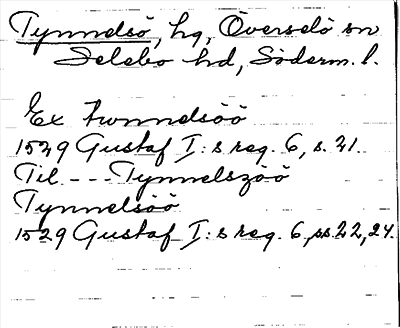 Tynnelsö, hg, Överselö sn
Selebo hd, Söderm. l.
Ex Tunnelsöö
1529 Gustaf I:s reg. 6, s. 21.
Til - - - Tynnelszöö
Tynnelsöö
1529 Gustaf I:s reg. 6, ss. 22, 24.